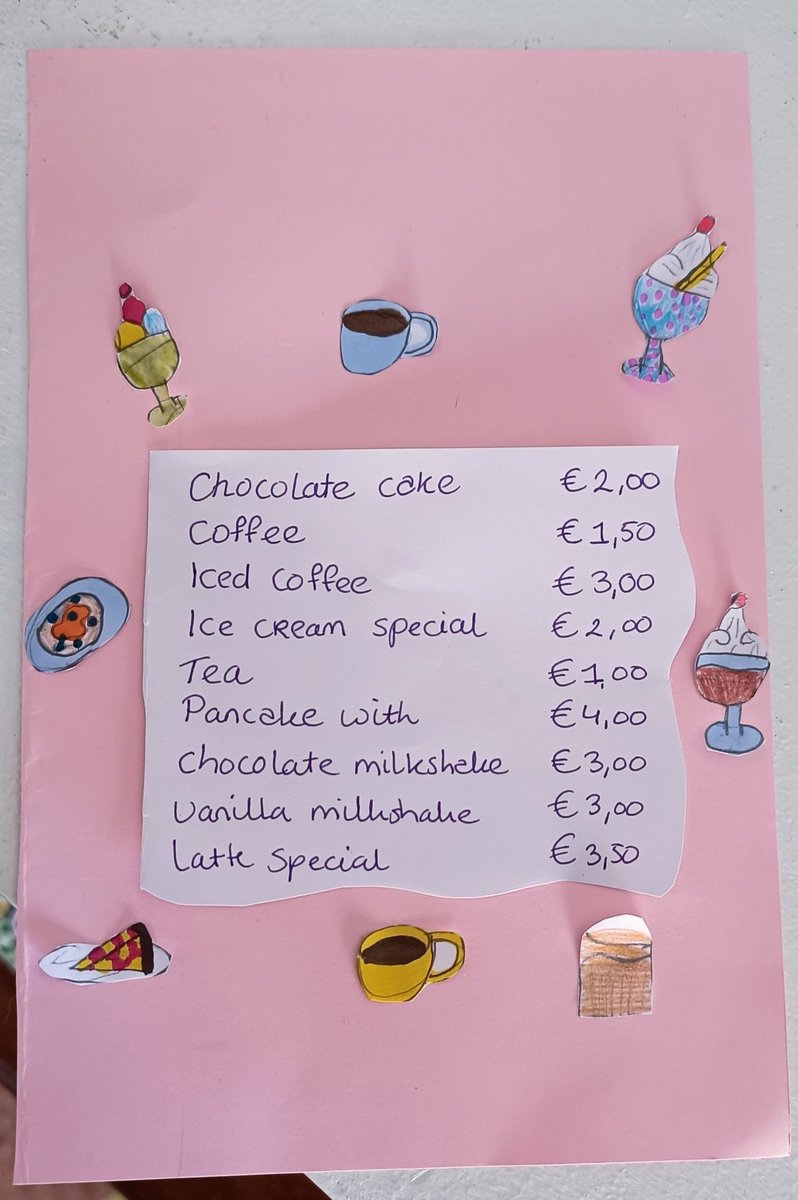 Chocolate cake €2,00
Coffee €1,50
Iced coffee €3,00
Ice cream special €2,00
Tea €1,00
Pancake with €4,00
Chocolate milkshake €3,00
Vanilla milkshake €3,00
Latte special €3,50